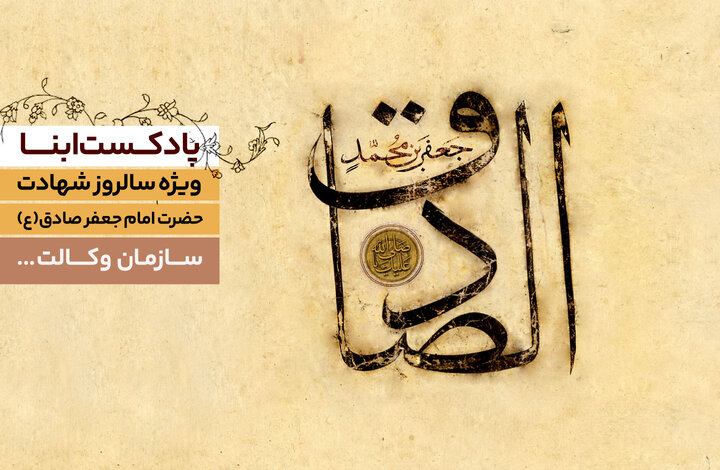 پادکست ابنا
ویژه سالروز شهادت
حضرت امام جعفر صادق(ع)
سازمان وکالت...
الصادق
جعفر بن محمّدٍ
صلی الله
علیک یا